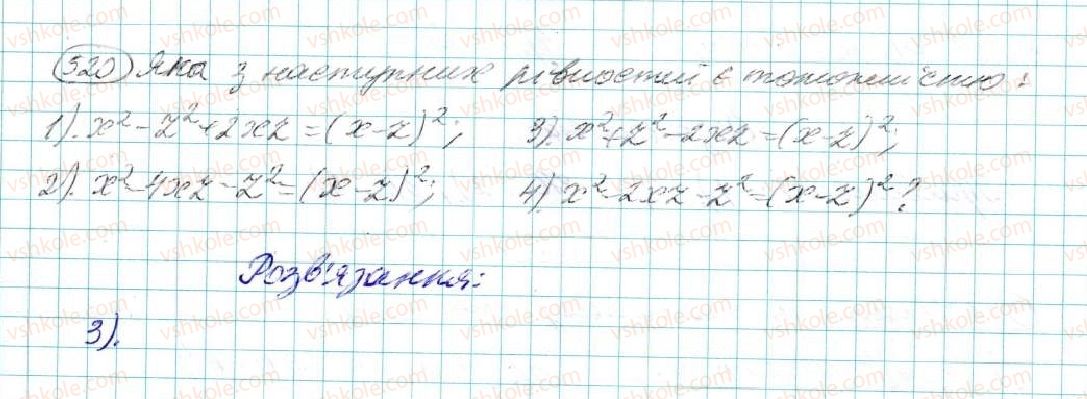 520 Яка з наступних рівностей є тотожністю:
1). x² - z² + 2xz = (x - z)²; 3). x² + z² - 2xz = (x - z)²;
2). x² - 4xz - z² = (x - z)²; 4). x² - 2xz - z² = (x - z)²?
Розв'язання:
3).